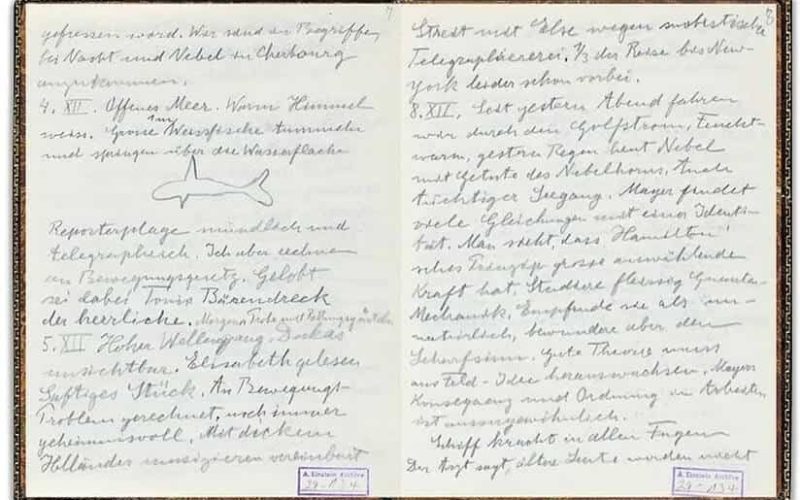 gefressen ward. Wir sind im Begriffe,
bei Nacht und Nebel in Cherbourg
anzukommen.
4. XII. Offenes Meer. Warm Himmel
weiss. Grosse Weissfische tummeln
und springen über die Wasserfläche
Reporterplage mündlich und
telegraphisch. Ich aber rechnen
an Bewegungsgesetz. Gelobt
sei dabei Bärendreck
der herrliche. Morgens mit
5. XII Hoher Wellengang. Dukas
unsichtbar. Elisabeth gelesen
Saftiges Stück. An Bewegungs-
Problem gerechnet, noch immer
geheimnisvoll. Mit dickem
Holländer musizieren vereinbart
A. Einstein Archive
29-134
8
Streit mit Else wegen
Telegraphiererei. 1/3 der Reise bis New-
york leider schon vorbei.
8. XII. Seit gestern Abend fahren
wir durch den Golfstrom, Feucht-
warm, gestern Regen heut Nebel
mit Getute des Nebelhorns. Auch
tüchtiger Seegang. Mayer findet
viele Gleichungen mit einer Identi-
tät. Man sieht, dass Hamilton'
sches Prinzip grosse auswählende
Kraft hat. Studiere fleissig Quanten-
Mechanik. Empfinde sie als un-
natürlich, bewundere aber den
Scharfsinn. Gute Theorie muss
aus Feld-Idee herauswachsen. Mayers
Konsequenz und Ordnung im Arbeiten
ist aussergewöhnlich.
Schiff kracht in allen Fugen
Der Arzt sagt, ältere Leute werden nicht
A. Einstein Archive
29-134